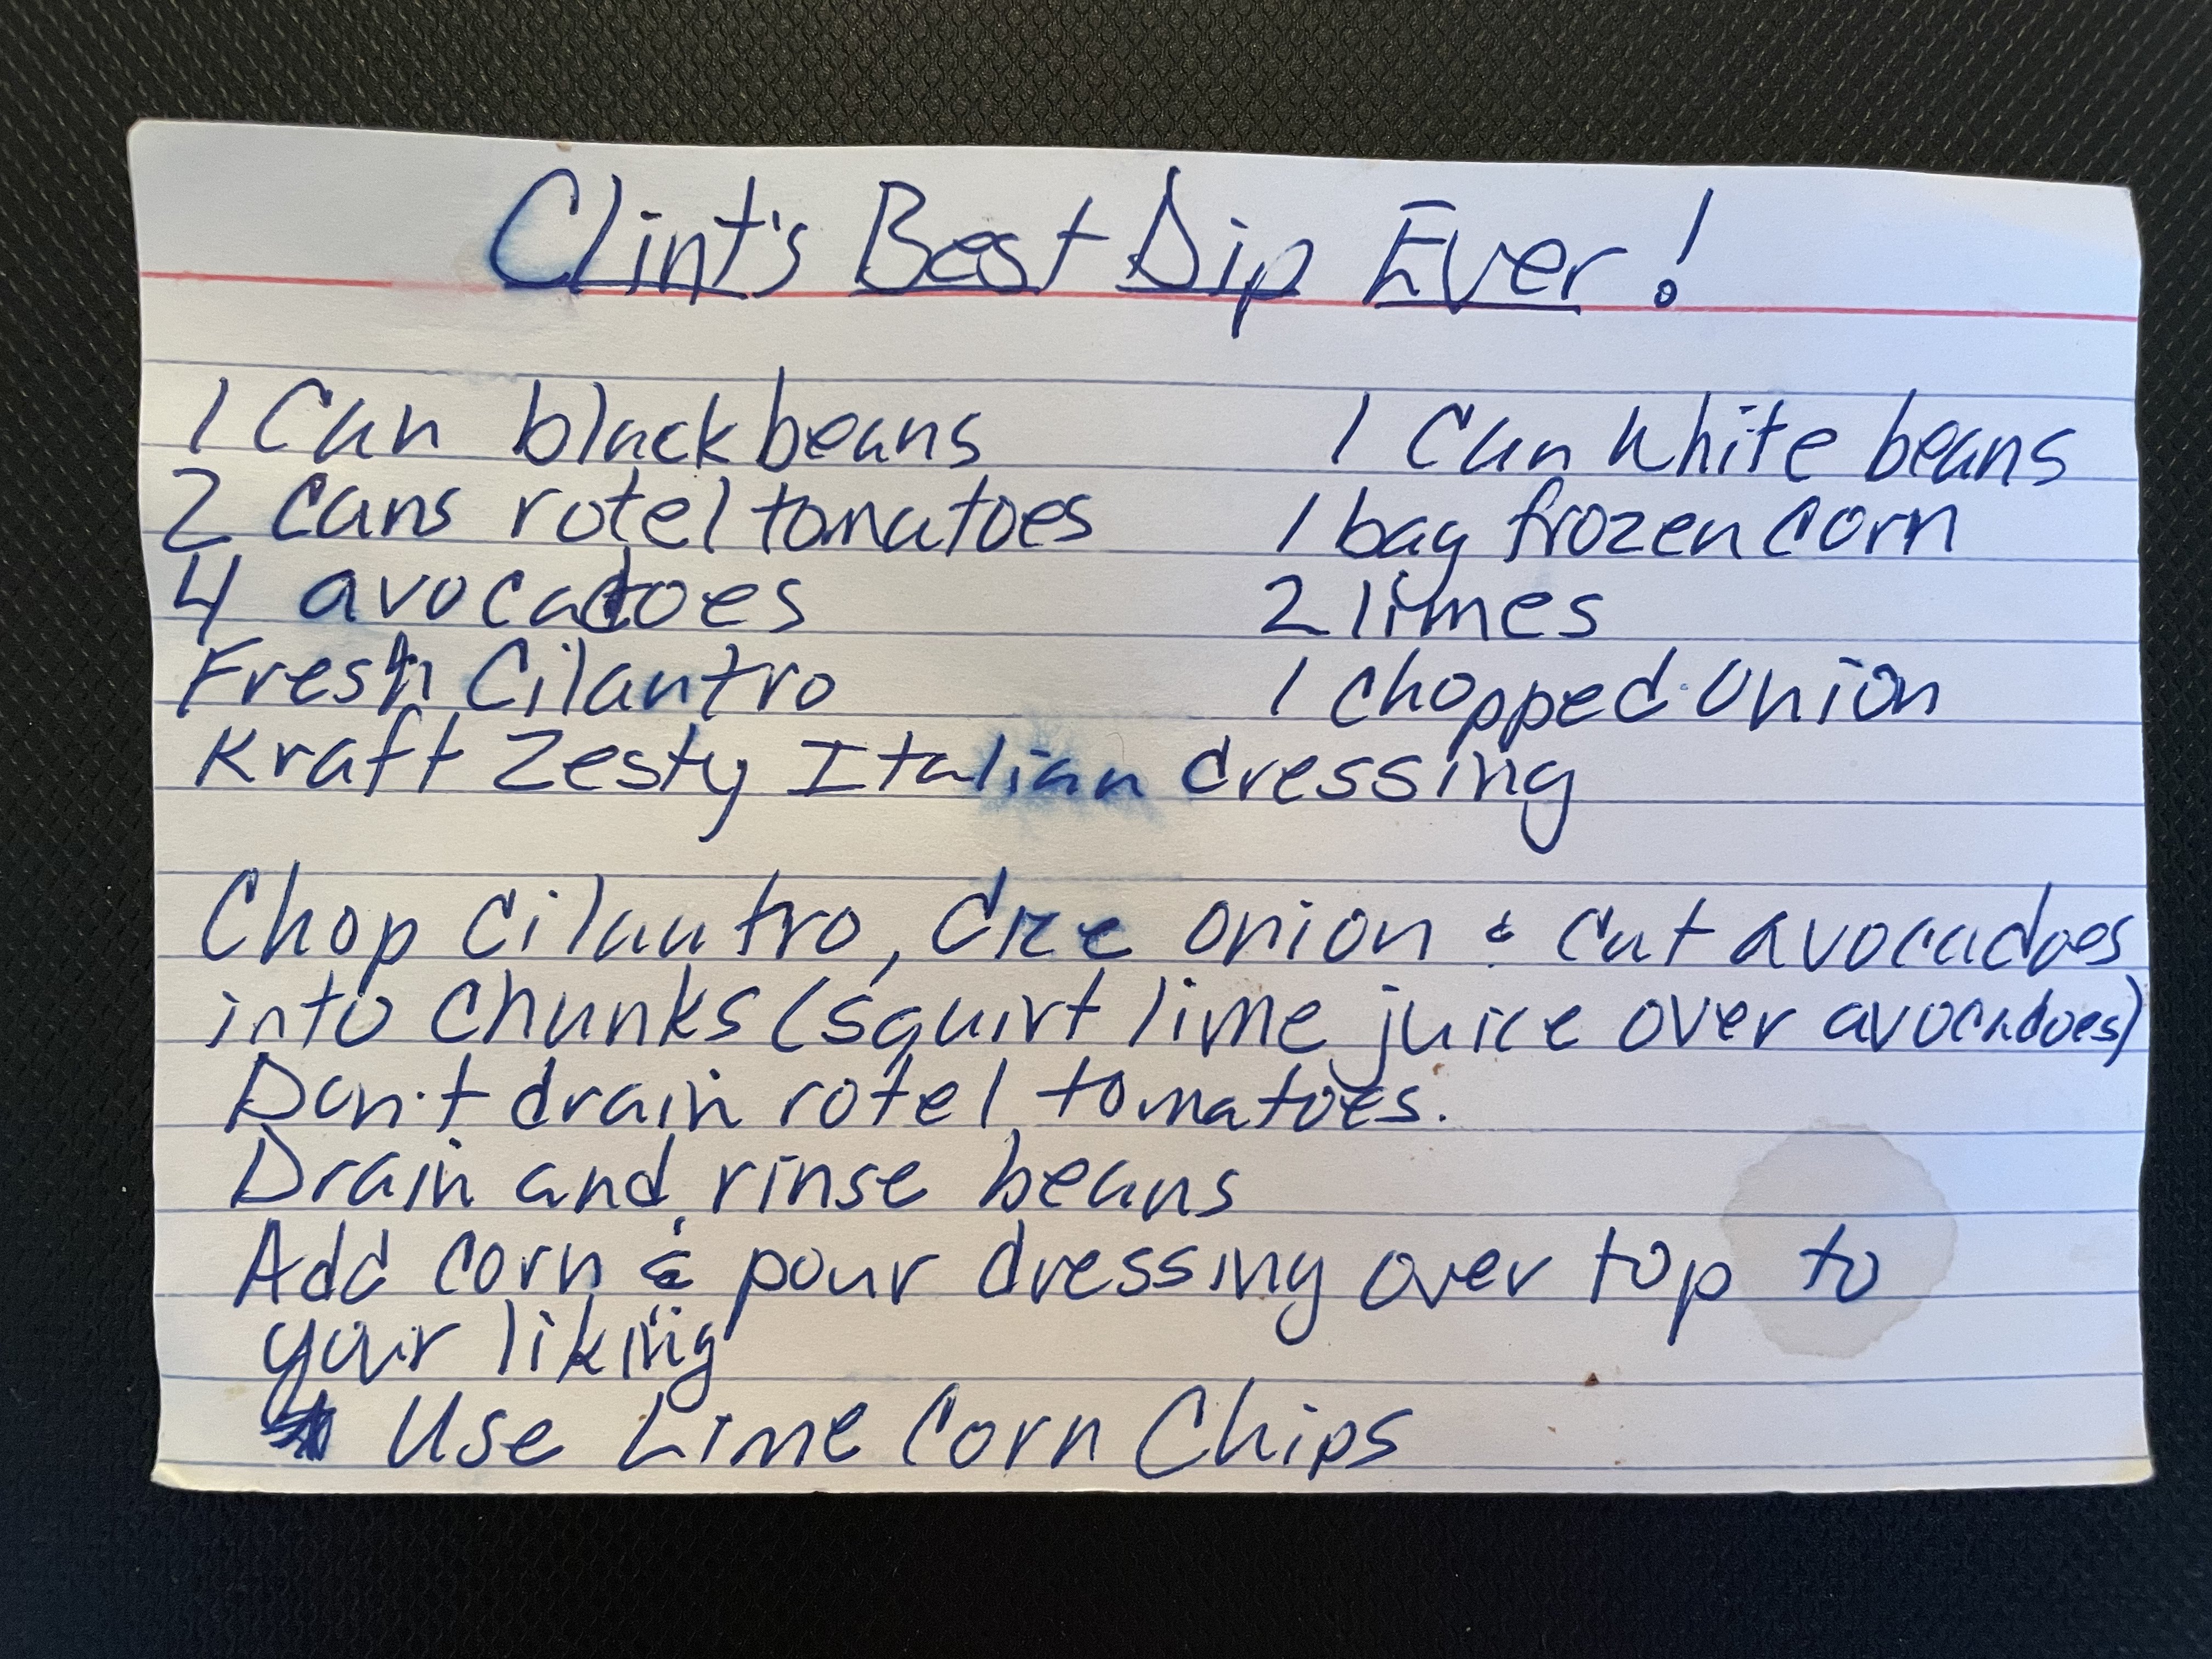 Clint's Best Dip Ever!
1 Can black beans 1 Can White beans
2 Cans rotel tomatoes 1 bag frozen corn
4 avocadoes 2 limes
Fresh Cilantro 1 chopped onion
Kraft Zesty Italian dressing
Chop Cilantro, dice onion & cut avocadoes
into chunks (squirt lime juice over avocadoes)
Don't drain rotel tomatoes.
Drain and rinse beans
Add corn & pour dressing over top to
your liking
Use Lime Corn Chips